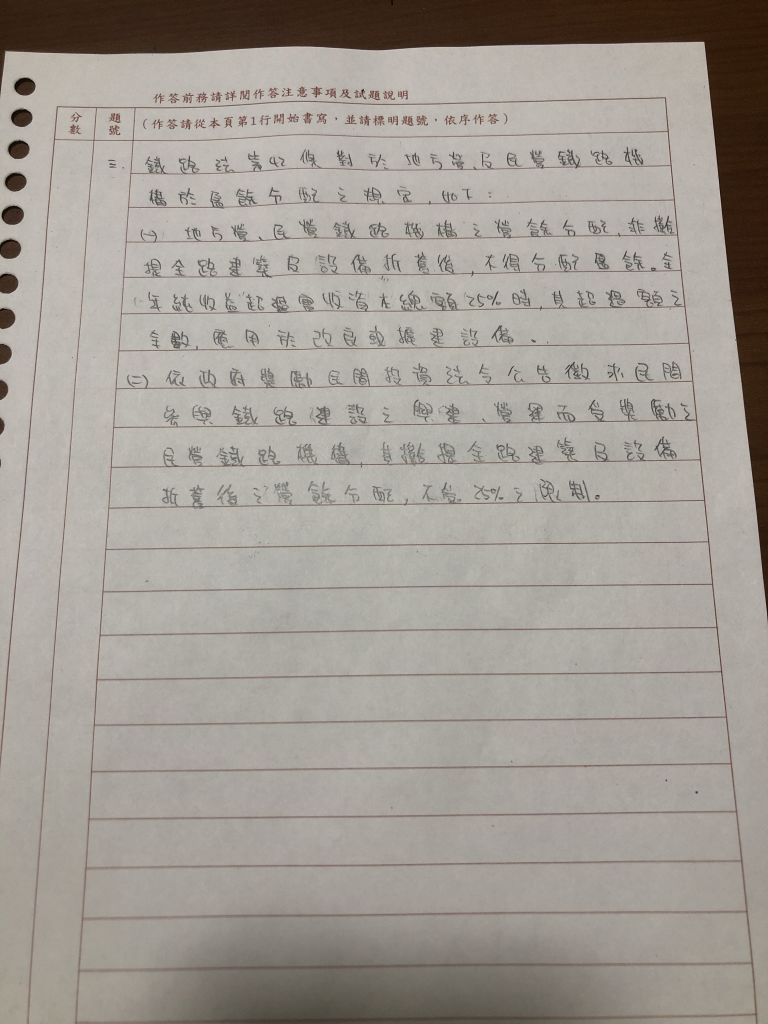 作答前務請詳閱作答注意事項及試題說明
分數
題號
(作答請從本頁第1行開始書寫，並請標明題號，依序作答)
三. 鐵路法第42條對於地方營、及民營鐵路機
構於盈餘分配之規定，如下：
(一) 地方營、民營鐵路機構之營餘分配，非攤
提全路建築及設備折舊後，不得分配盈餘。全
年純收益超過實收資本總額25%時，其超過額之
全數，應用於改良或擴建設備。
(二) 依政府獎勵民間投資法令公告徵求民間
參與鐵路建設之興建、營運而受獎勵之
民營鐵路機構，其攤提全路建築及設備
折舊後之營餘分配，不受25%之限制。